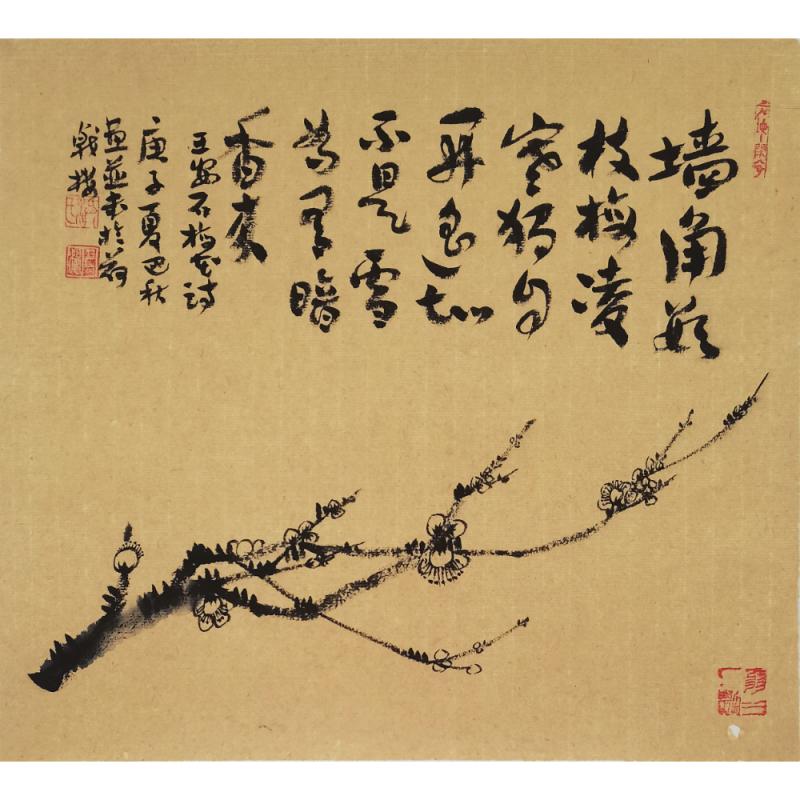 墙角数
枝梅凌
寒独自
开遥知
不是雪
为有暗
香来
王安石梅花诗
庚子夏巴秋